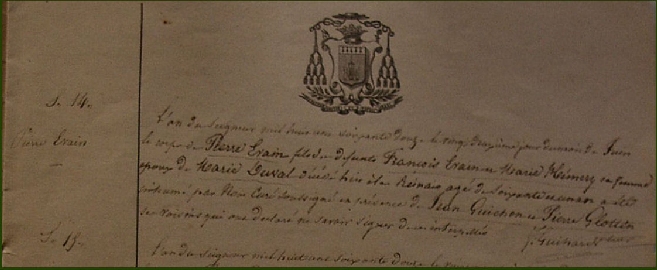 S. 14.
Pierre Erain
L'an du Seigneur mil huit cent soixante douze le vingt deuxième jour du mois de Juin
le corps de Pierre Erain fils de défunts François Erain et Marie Hémery en
époux de Marie Duval décédé hier à la agé de soixante un an a été
inhumé par Nous Curé soussigné en présence de Jean Guichon et Pierre Glotin
ses voisins qui ont déclaré ne savoir signer de ce interpellés
S. 15.
L'an du Seigneur mil huit cent soixante douze le